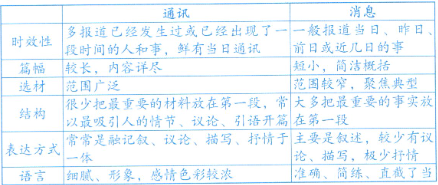 通讯 消息
时效性 多报道已经发生过或已经出现了一 一般报道当日、昨日、
段时间的人和事，鲜有当日通讯 前日或近几日的事
篇幅 较长，内容详尽 短小，简洁概括
选材 范围广泛 范围较窄，聚焦典型
结构 很少把最重要的材料放在第一段，常 大多把最重要的事实放
以最吸引人的情节、议论、引语开篇 在第一段
表达方式 常常是融记叙、议论、描写、抒情于 主要是叙述，较少有议
一体 论、描写，极少抒情
语言 细腻、形象，感情色彩较浓 准确、简练、直截了当